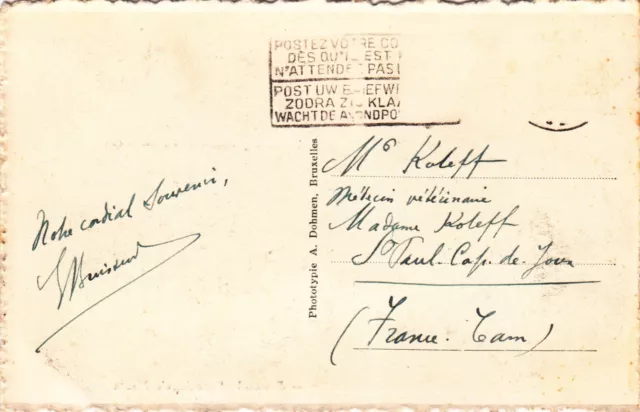 POSTEZ VOTRE CO
DÈS QU'IL EST
N'ATTENDEZ PAS L
POST UW BRIEFWI
ZODRA ZIJ KLA
WACHT DE AVONDPO
Phototypie A. Dohmen, Bruxelles
Notre cordial Souvenir,
Mr Koleff
Médecin vétérinaire
Madame Koleff
St Paul. Cap. de. Joux
(France. Tarn)